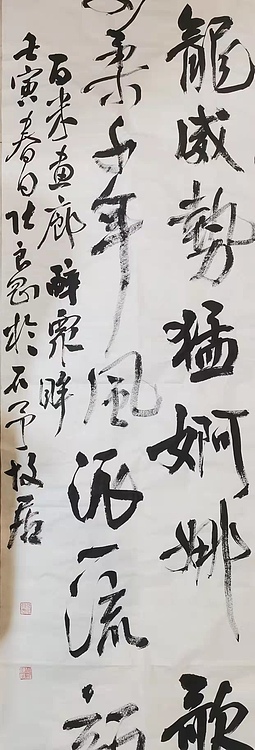 龍威勢猛婀娜歌
柔千年風派一流
百米畫廊醉眸
壬寅春日张良於石予故居